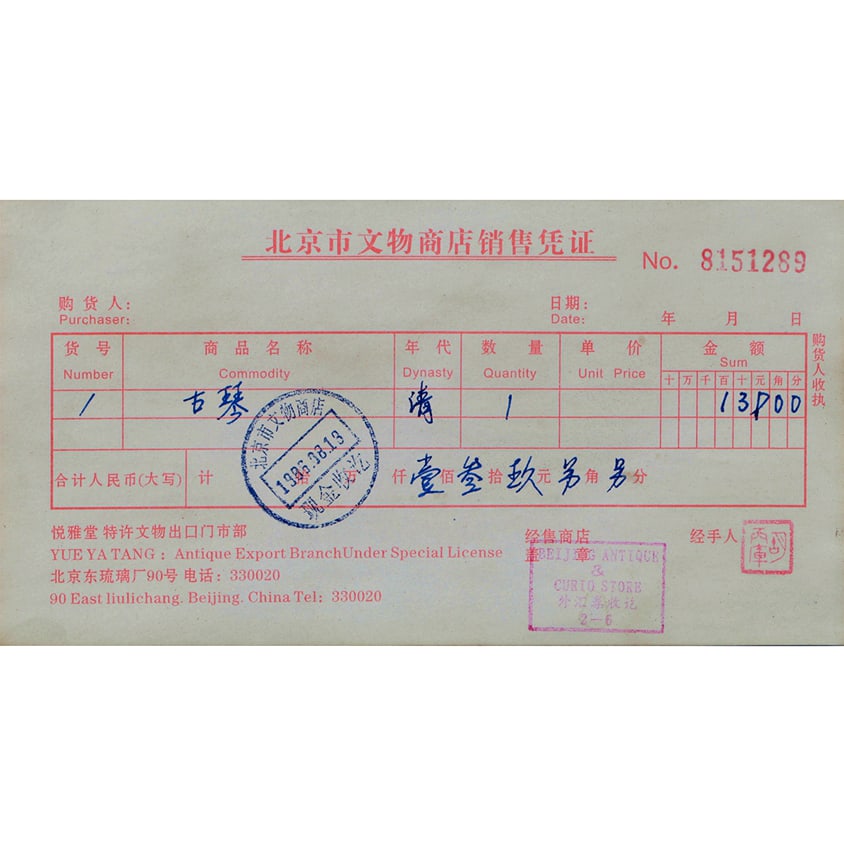 北京市文物商店销售凭证
No. 8151289
购货人:
Purchaser:
日期:
Date:
年 月 日
货号 商品名称 年代 数量 单价 金额
Number Commodity Dynasty Quantity Unit Price Sum
十 万 千 百 十 元 角 分
1 古琴 清 1 13900
合计人民币(大写) 计 拾 万 仟 壹 佰 叁 拾 玖 元 另 角 另 分
购货人收执
北京市文物商店
1986.08.19
现金收讫
悦雅堂 特许文物出口门市部
YUE YA TANG : Antique Export BranchUnder Special License
北京东琉璃厂90号 电话: 330020
90 East liulichang. Beijing. China Tel: 330020
经售商店
盖 章
BEIJING ANTIQUE
&
CURIO STORE
外汇券收讫
2-6
经手人